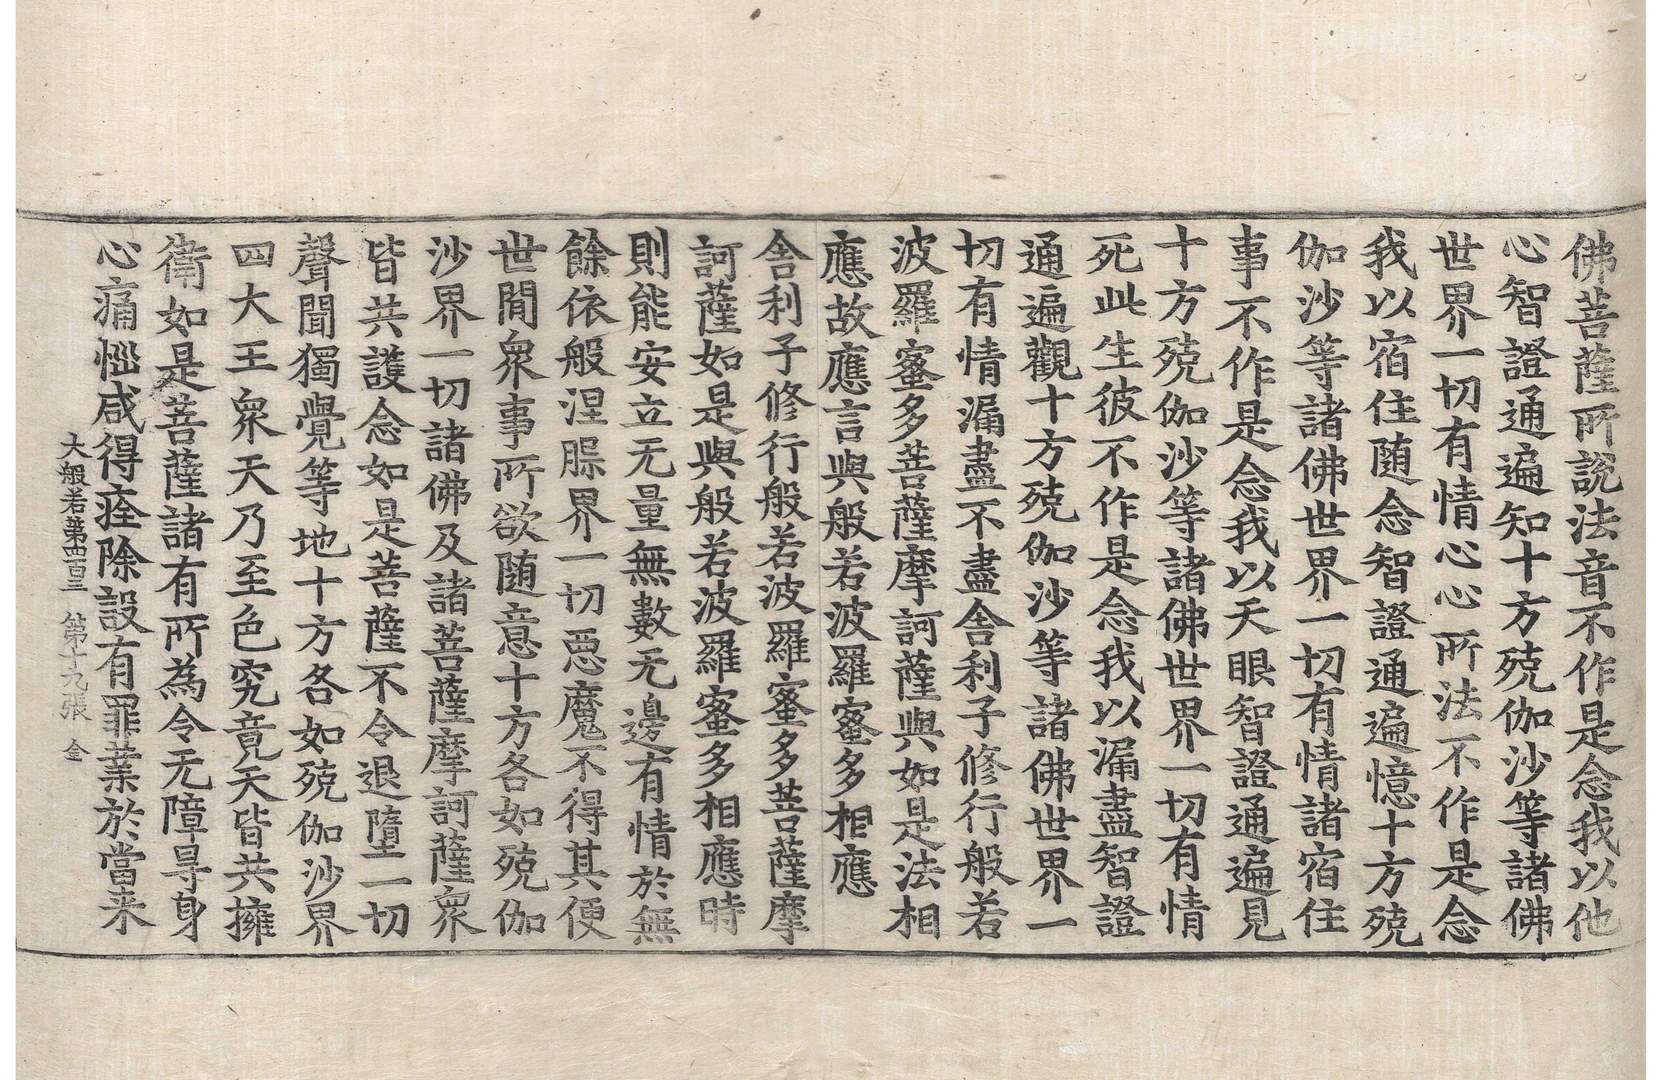 佛菩薩所說法音不作是念我以他
心智證通遍知十方殑伽沙等諸佛
世界一切有情心心所法不作是念
我以宿住随念智證通遍憶十方殑
伽沙等諸佛世界一切有情諸宿住
事不作是念我以天眼智證通遍見
十方殑伽沙等諸佛世界一切有情
死此生彼不作是念我以漏盡智證
通遍觀十方殑伽沙等諸佛世界一
切有情漏盡不盡舎利子修行般若
波羅蜜多菩薩摩訶薩與如是法相
應故應言與般若波羅蜜多相應
舎利子修行般若波羅蜜多菩薩摩
訶薩如是與般若波羅蜜多相應時
則能安立无量無數无邊有情於無
餘依般涅槃界一切惡魔不得其便
世間衆事所欲随意十方各如殑伽
沙界一切諸佛及諸菩薩摩訶薩衆
皆共護念如是菩薩不令退墮一切
聲聞獨覺等地十方各如殑伽沙界
四大王衆天乃至色究竟天皆共擁
衛如是菩薩諸有所為令无障㝵身
心痛惱咸得痊除設有罪業於當来
大般若第四百三 第十九張 全